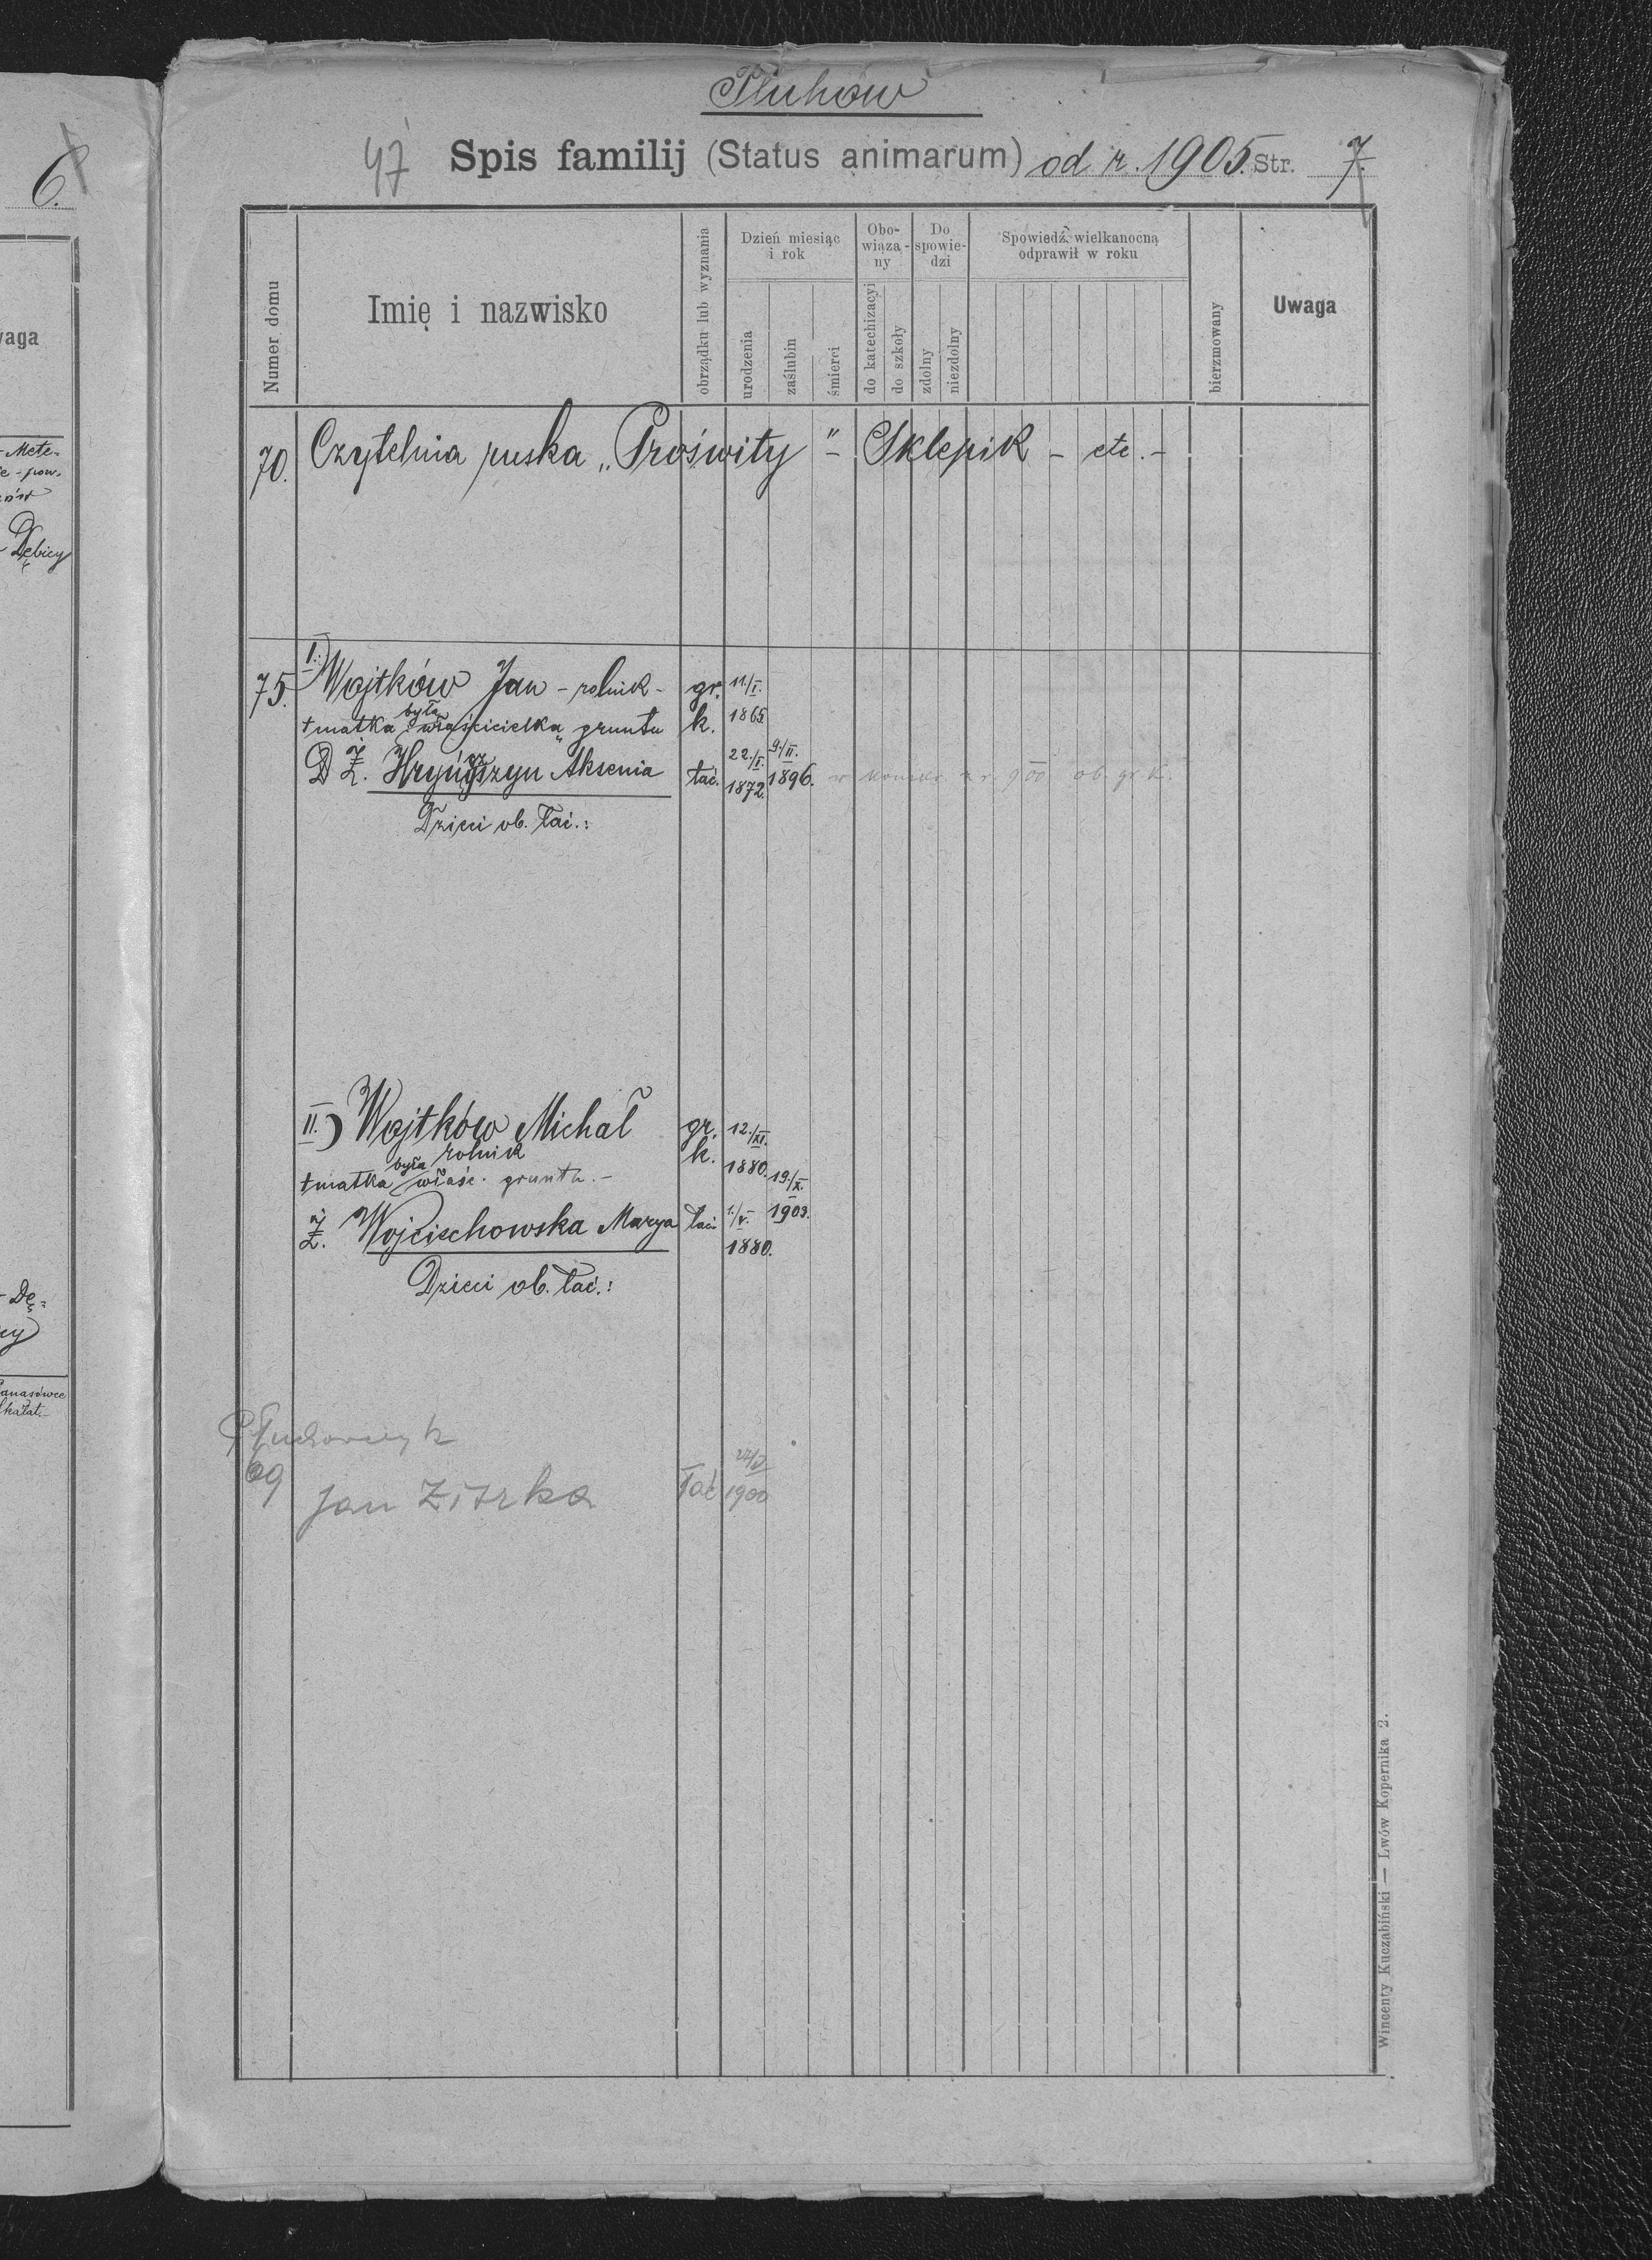 6.
aga
Mete-
e - pow.
Dębicy
- Dę-
cy
Płuhów
47
Spis familij (Status animarum) od r. 1905. Str. 7.
Numer domu
Imię i nazwisko
obrządku lub wyznania
Dzień miesiąc i rok
urodzenia
zaślubin
śmierci
Obo-
wiąza-
ny
do katechizacyi
do szkoły
Do
spowie-
dzi
zdolny
niezdolny
Spowiedź wielkanocną
odprawił w roku
bierzmowany
Uwaga
70. Czytelnia ruska „Proświty" - Sklepik - etc. -
75. I.) Wojtków Jan - rolnik - gr. k. 11./I. 1865
† matka była właścicielką gruntu
Ż. Aksenia łać. 22./I. 1872. 9./II. 1896. ob. gr. k.
Dzieci ob. łać.:
II.) Wojtków Michał gr. k. 12./XI. 1880.
rolnik
† matka była właśc. gruntu. -
19./X. 1903.
Ż. Wojciechowska Marya łać. 1./V. 1880.
Dzieci ob. łać.:
69 Jan łać 1900
Wincenty Kuczabiński — Lwów Kopernika 2.